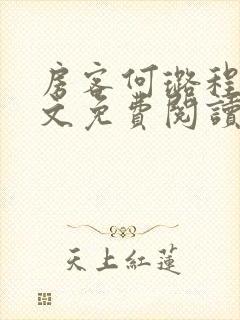 房客何璐程
文免費閱讀
天上紅蓮